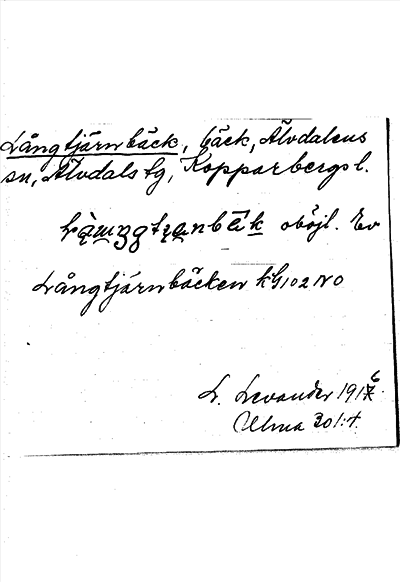 Långtjärnbäck, bäck, Älvdalens
sn, Älvdals tg, Kopparbergs l.
oböjl. Ev
Långtjärnbäcken kG102 NO
L. Levander 1916.
Ulma 301:1.